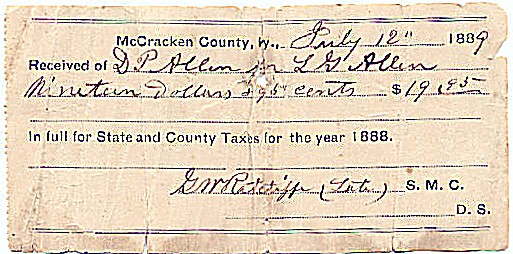 McCracken County, Ky., July 12" 1889
Received of D P Allen for L G Allen
Nineteen Dollars & 95 cents $19.95
In full for State and County Taxes for the year 1888.
G W Ratcliffe (Late) S. M. C.
D. S.